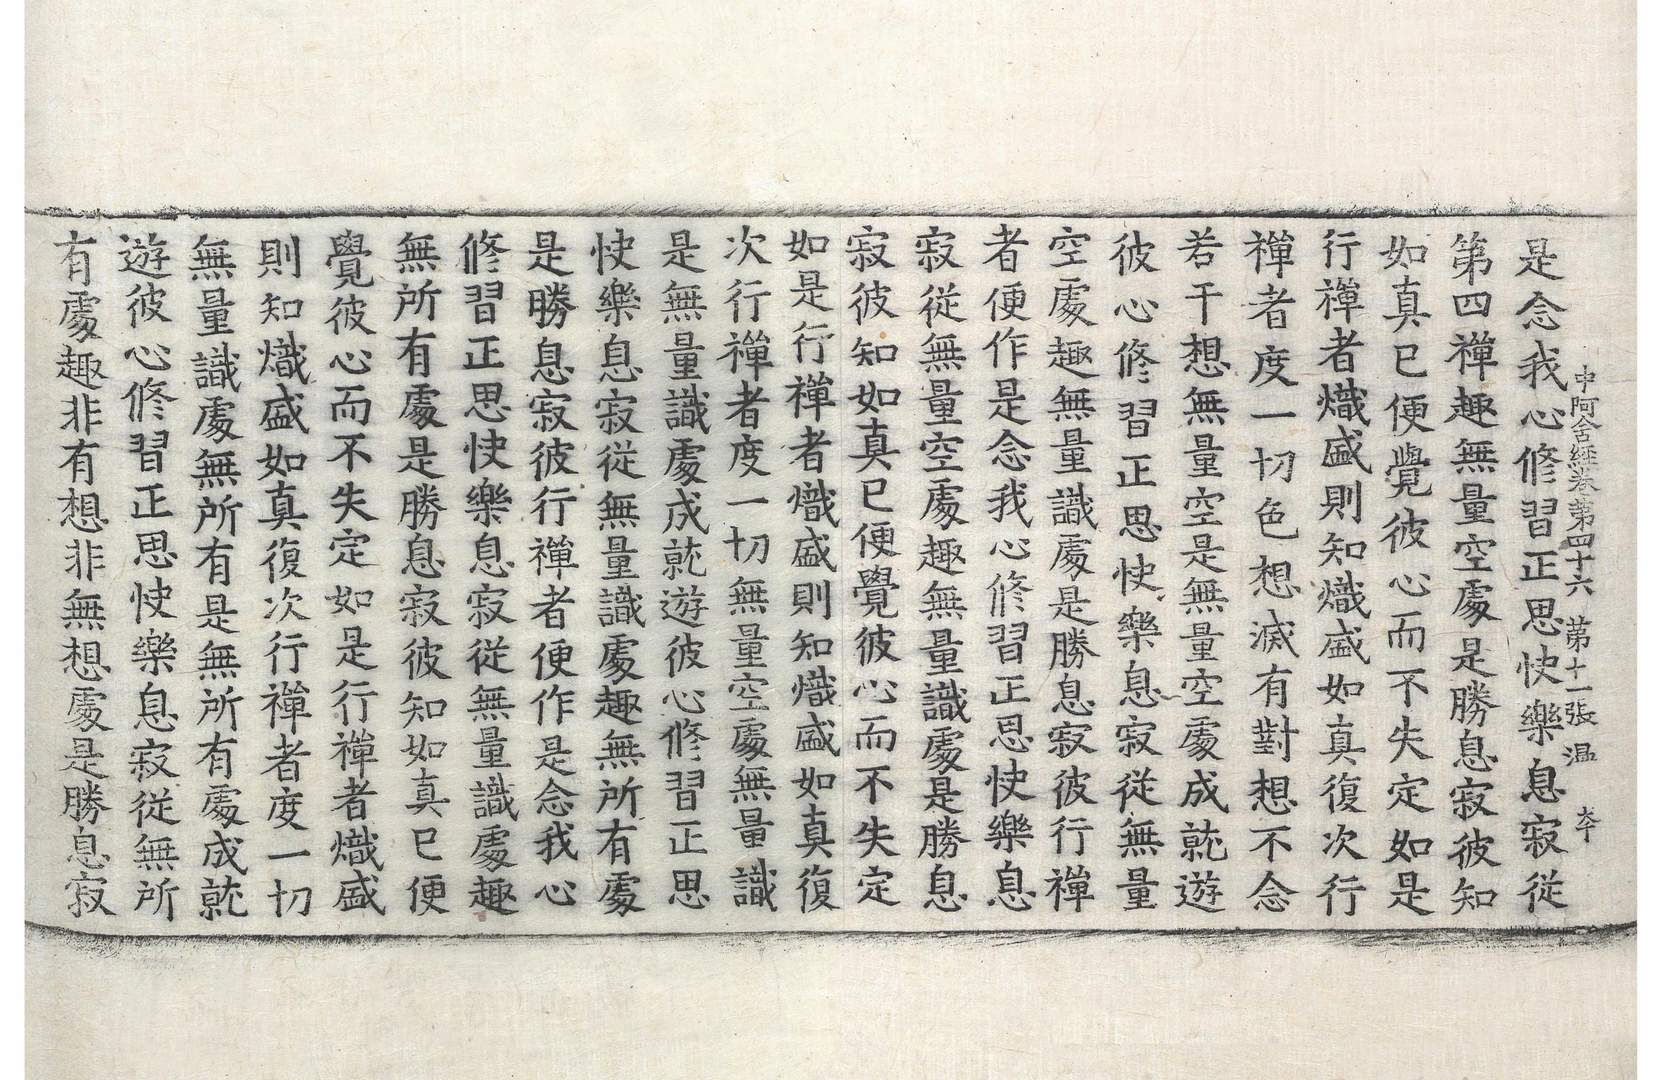 中阿含經卷第四十六 第十一張 温 大
是念我心修習正思快樂息寂從
第四禪趣無量空處是勝息寂彼知
如真已便覺彼心而不失定如是
行禪者熾盛則知熾盛如真復次行
禪者度一切色想滅有對想不念
若干想無量空是無量空處成就遊
彼心修習正思快樂息寂從無量
空處趣無量識處是勝息寂彼行禪
者便作是念我心修習正思快樂息
寂從無量空處趣無量識處是勝息
寂彼知如真已便覺彼心而不失定
如是行禪者熾盛則知熾盛如真復
次行禪者度一切無量空處無量識
是無量識處成就遊彼心修習正思
快樂息寂從無量識處趣無所有處
是勝息寂彼行禪者便作是念我心
修習正思快樂息寂從無量識處趣
無所有處是勝息寂彼知如真已便
覺彼心而不失定如是行禪者熾盛
則知熾盛如真復次行禪者度一切
無量識處無所有是無所有處成就
遊彼心修習正思快樂息寂從無所
有處趣非有想非無想處是勝息寂